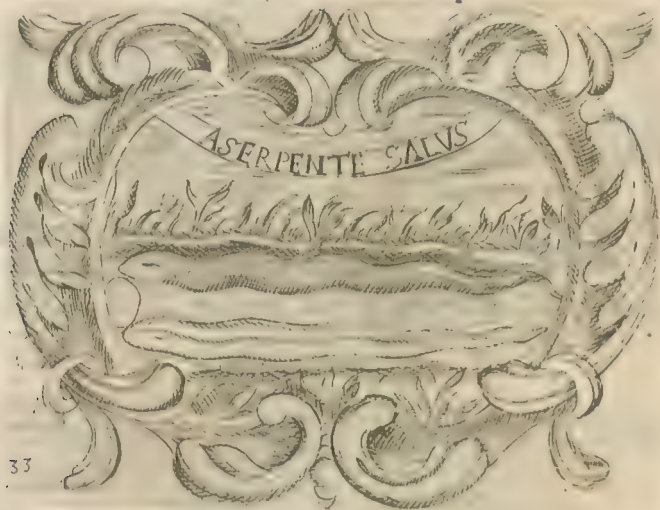 A SERPENTE SALVS
33